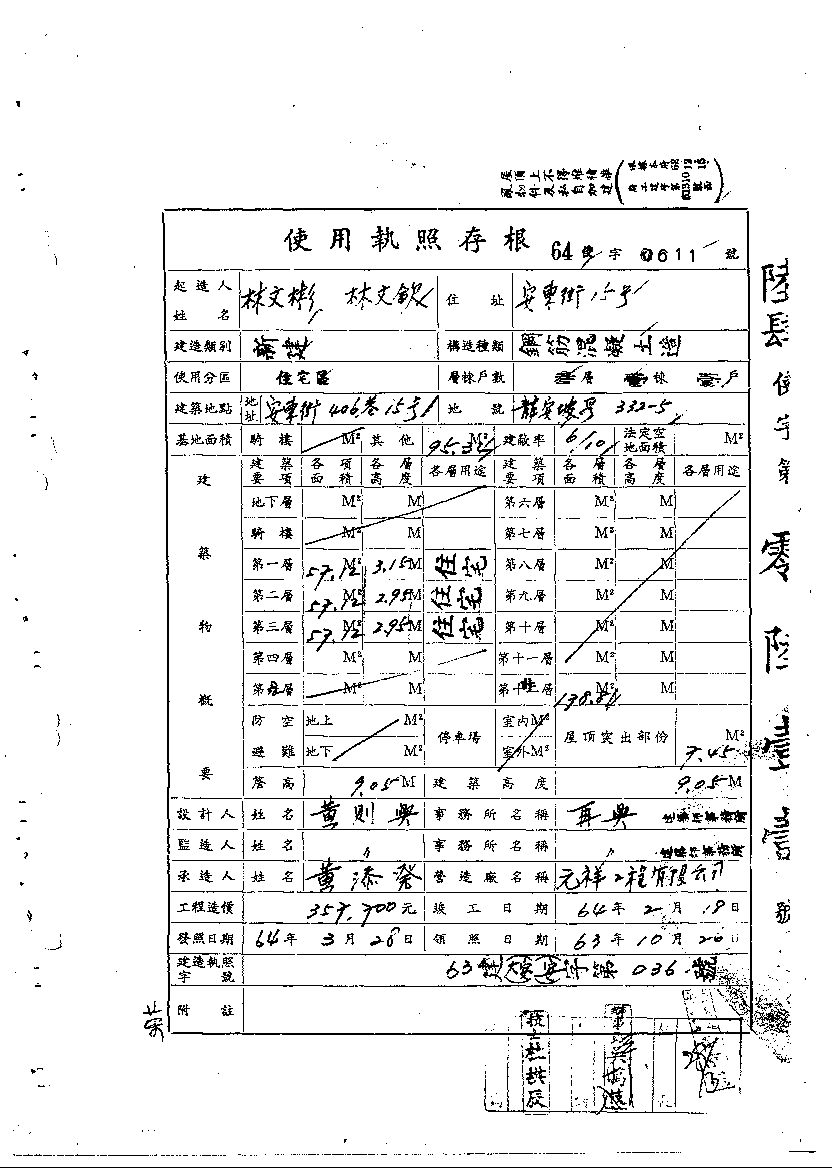 屋頂上不得堆積
使用執照存根 64 使字 0611 號
起造人姓名 林文彬 林文欽 住址 安東街15号
建造類別 新建 構造種類 鋼筋混凝土造
使用分區 住宅區 層棟戶數 層 棟 戶
建築地點 地址 安東街406巷15号 地號 332-5
基地面積 騎樓 M² 其他 M² 建蔽率 6/10 法定空地面積 M²
建築物概要
建築要項 各項面積 各層高度 各層用途 建築要項 各層面積 各層高度 各層用途
地下層 M² M 第六層 M² M
騎樓 M² M 第七層 M² M
第一層 57.12 M² 3.15M 住宅 第八層 M² M
第二層 57.12 M² 2.95M 住宅 第九層 M² M
第三層 57.12 M² 2.95M 住宅 第十層 M² M
第四層 M² M 第十一層 M² M
第五層 M² M 第十 層 M² M
138.84
防空避難 地上 M² 地下 M² 停車場 室內M² 室外M² 屋頂突出部份 7.45 M²
簷高 9.05M 建築高度 9.05M
設計人 姓名 黃則興 事務所名稱 再興
監造人 姓名 〃 事務所名稱 〃
承造人 姓名 黃添發 營造廠名稱 元祥工程有限公司
工程造價 357,700元 竣工日期 64年2月18日
發照日期 64年3月28日 領照日期 63年10月26日
建造執照字號 63 建(大安)(安)字第 036 號
附註
陸肆 使字第 零陸壹壹 號